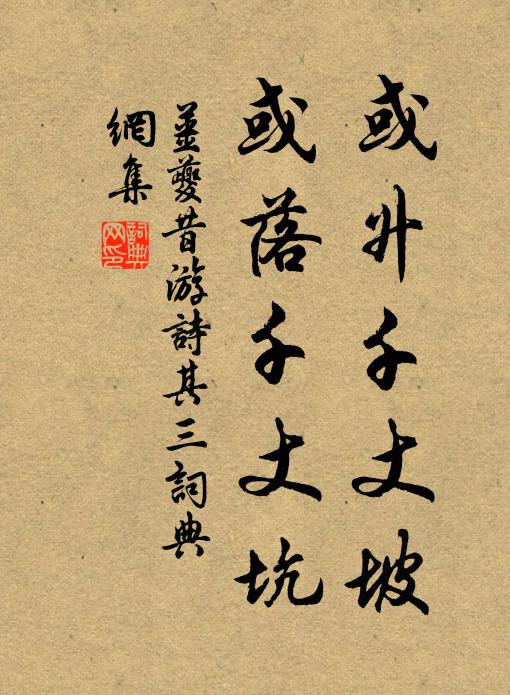 或升千丈坡
或落千丈坑
姜夔昔游詩其三詞典
網集
詞典
网印